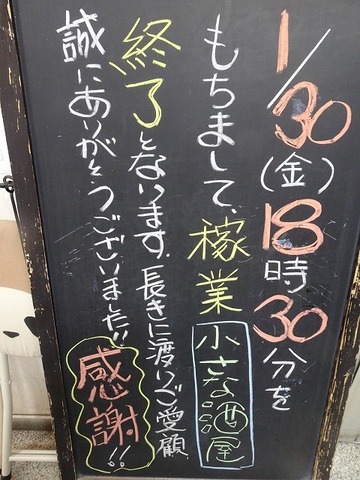 1/30(金)18時30分を
もちまして、稼業小さな酒屋
終了となります。長きに渡りご愛顧
誠にありがとうございました!!
感謝!!